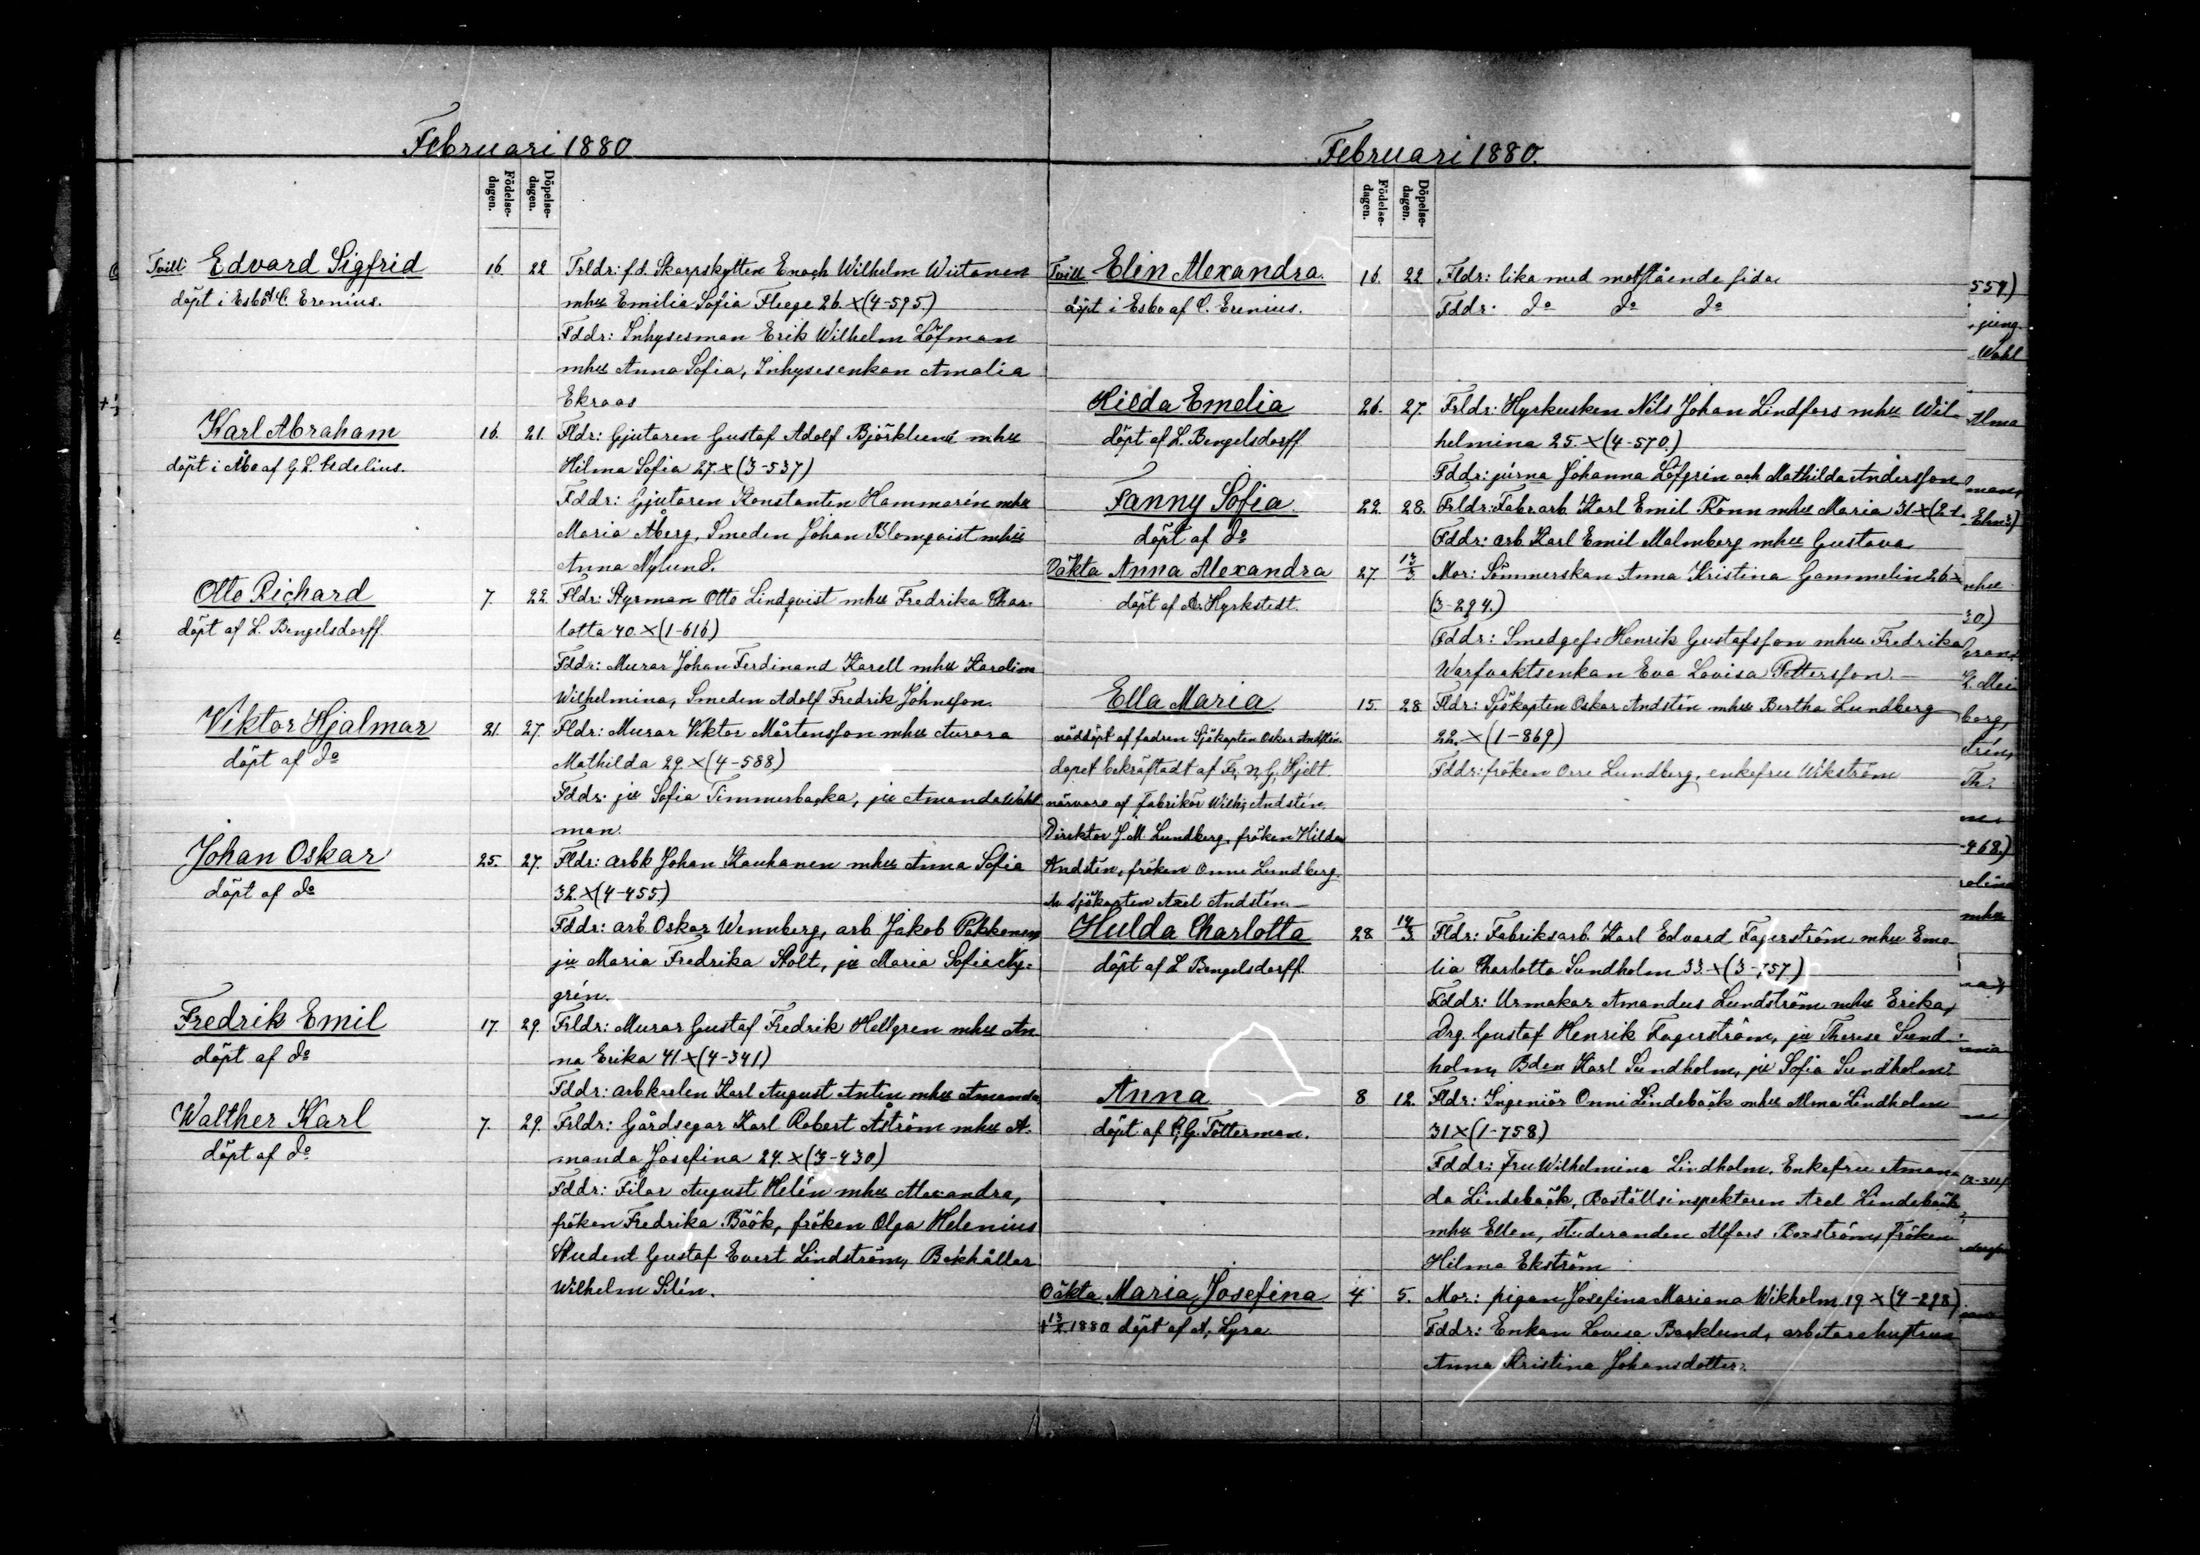 Februari 1880
Födelse-dagen.
Döpelse-dagen.
Tvill: Edvard Sigfrid 16. 22 Frldr: f.d. Skarpskytten Enoch Wilhelm Wiitanen
döpt i Esbo C. Erenius. mhu Emilia Sofia Fleege 26 × (4-595.)
Fddr: Inhysesman Erik Wilhelm Löfman
mhu Anna Sofia, Inhysesenkan Amalia
Ekroos
Karl Abraham 16. 21. Fldr: Gjutaren Gustaf Adolf Björklund mhu
döpt i Åbo af G. L. Hilma Sofia 27 × (3-537)
Fddr: Gjutaren Konstantin Hammarén mhu
Maria Åberg, Smeden Johan Blomqvist mhu
Anna Nylund.
Otto Richard 7. 22. Fldr: Styrman Otto Lindqvist mhu Fredrika Char-
döpt af L. Bengelsdorff lotta 40. × (1-616)
Fddr: Murar Johan Ferdinand Karell mhu Karolina
Wilhelmina, Smeden Adolf Fredrik Johnsson.
Viktor Hjalmar 21. 27 Fldr: Murar Viktor Mårtensson mhu Aurora
döpt af do Mathilda 29. × (4-588)
Fddr: ju Sofia Timmerbacka, ju Amanda Wahl
man.
Johan Oskar 25. 27. Fldr: arbk Johan Kauhanen mhu Anna Sofia
döpt af do 32. × (4-455)
Fddr: arb Oskar Wennberg, arb Jakob Pakkonen
ju Maria Fredrika Stolt, ju Maria Sofia Ny-
grén.
Fredrik Emil 17. 29. Frldr: Murar Gustaf Fredrik Hellgren mhu An
döpt af do na Erika 41 × (4-341)
Fddr: arbkarlen Karl August Antin mhu Amanda
Walther Karl 7. 29. Frldr: Gårdsegar Karl Robert Åström mhu A-
döpt af do manda Josefina 24. × (3-430)
Fddr: Filar August Helén mhu Alexandra,
fröken Fredrika Böök, fröken Olga Helenius
Student Gustaf Evert Lindström, Bokhållar
Wilhelm Silén.
Februari 1880.
Födelse-dagen.
Döpelse-dagen.
Tvill Elin Alexandra. 16. 22 Fldr: lika med motstående sida
döpt i Esbo af C. Erenius. Fddr: do do do
Hilda Emelia 26. 27. Frldr: Hyrkusken Nils Johan Lindfors mhu Wil-
döpt af L. Bengelsdorff helmina 25. × (4-570.)
Fddr: jurna Johanna Löfgrén och Mathilda Andersson
Fanny Sofia. 22. 28. Frldr: Fabr.arb. Karl Emil Rönn mhu Maria 31 × (2-1.
döpt af do Fddr: arb Karl Emil Malmberg mhu Gustava
Oäkta Anna Alexandra 27. 13/3. Mor: Sömmerskan Anna Kristina Gammelin 26 ×
döpt af Hyrkstedt. (3-294.)
Fddr: Smedges Henrik Gustafsson mhu Fredrika
Warfvaktsenkan Eva Lovisa Pettersson. —
Ella Maria. 15. 28 Fldr: Sjökapten Oskar Andstén mhu Bertha Lundberg
nöddöpt af fadren Sjökapten Oskar Andstén. 22. × (1-869)
dopet bekräftadt af N. G. Hjelt. Fddr: fröken Lundberg, enkefru Wikström
närvaro af Fabrikör Wilh. Andstén,
Direktor J. M. Lundberg, fröken Hilda
Andstén, fröken Onni Lundberg.
Sjökapten Axel Andstén. —
Hulda Charlotta 28 14/3. Fldr: Fabriksarb. Karl Edvard Fagerström mhu Eme
döpt af L Bengelsdorff. lia Charlotta Sundholm 33. × (3-757.)
Fddr: Urmakar Amandus Lundström mhu Erika,
Drg. Gustaf Henrik Fagerström, ju Therese Sund-
holm, Bden Karl Sundholm, ju Sofia Sundholm.
Anna 8 12. Fldr: Ingeniör Onni Lindebäck mhu Alma Lindholm
döpt af P. G. Totterman. 31 × (1-758)
Fddr: Fru Wilhelmina Lindholm, Enkefru Aman
da Lindebäck, Boställsinspektoren Axel Lindebäck
mhu Ellen, studeranden Alfons Boxström, fröken
Hilma Ekström
Oäkta Maria Josefina 4. 5. Mor: pigan Josefina Mariana Wikholm 19 × (4-298)
1880 döpt af A. Lyra Fddr: Enkan Lovisa Backlund, arbetarehustrun
Anna Kristina Johansdotter.